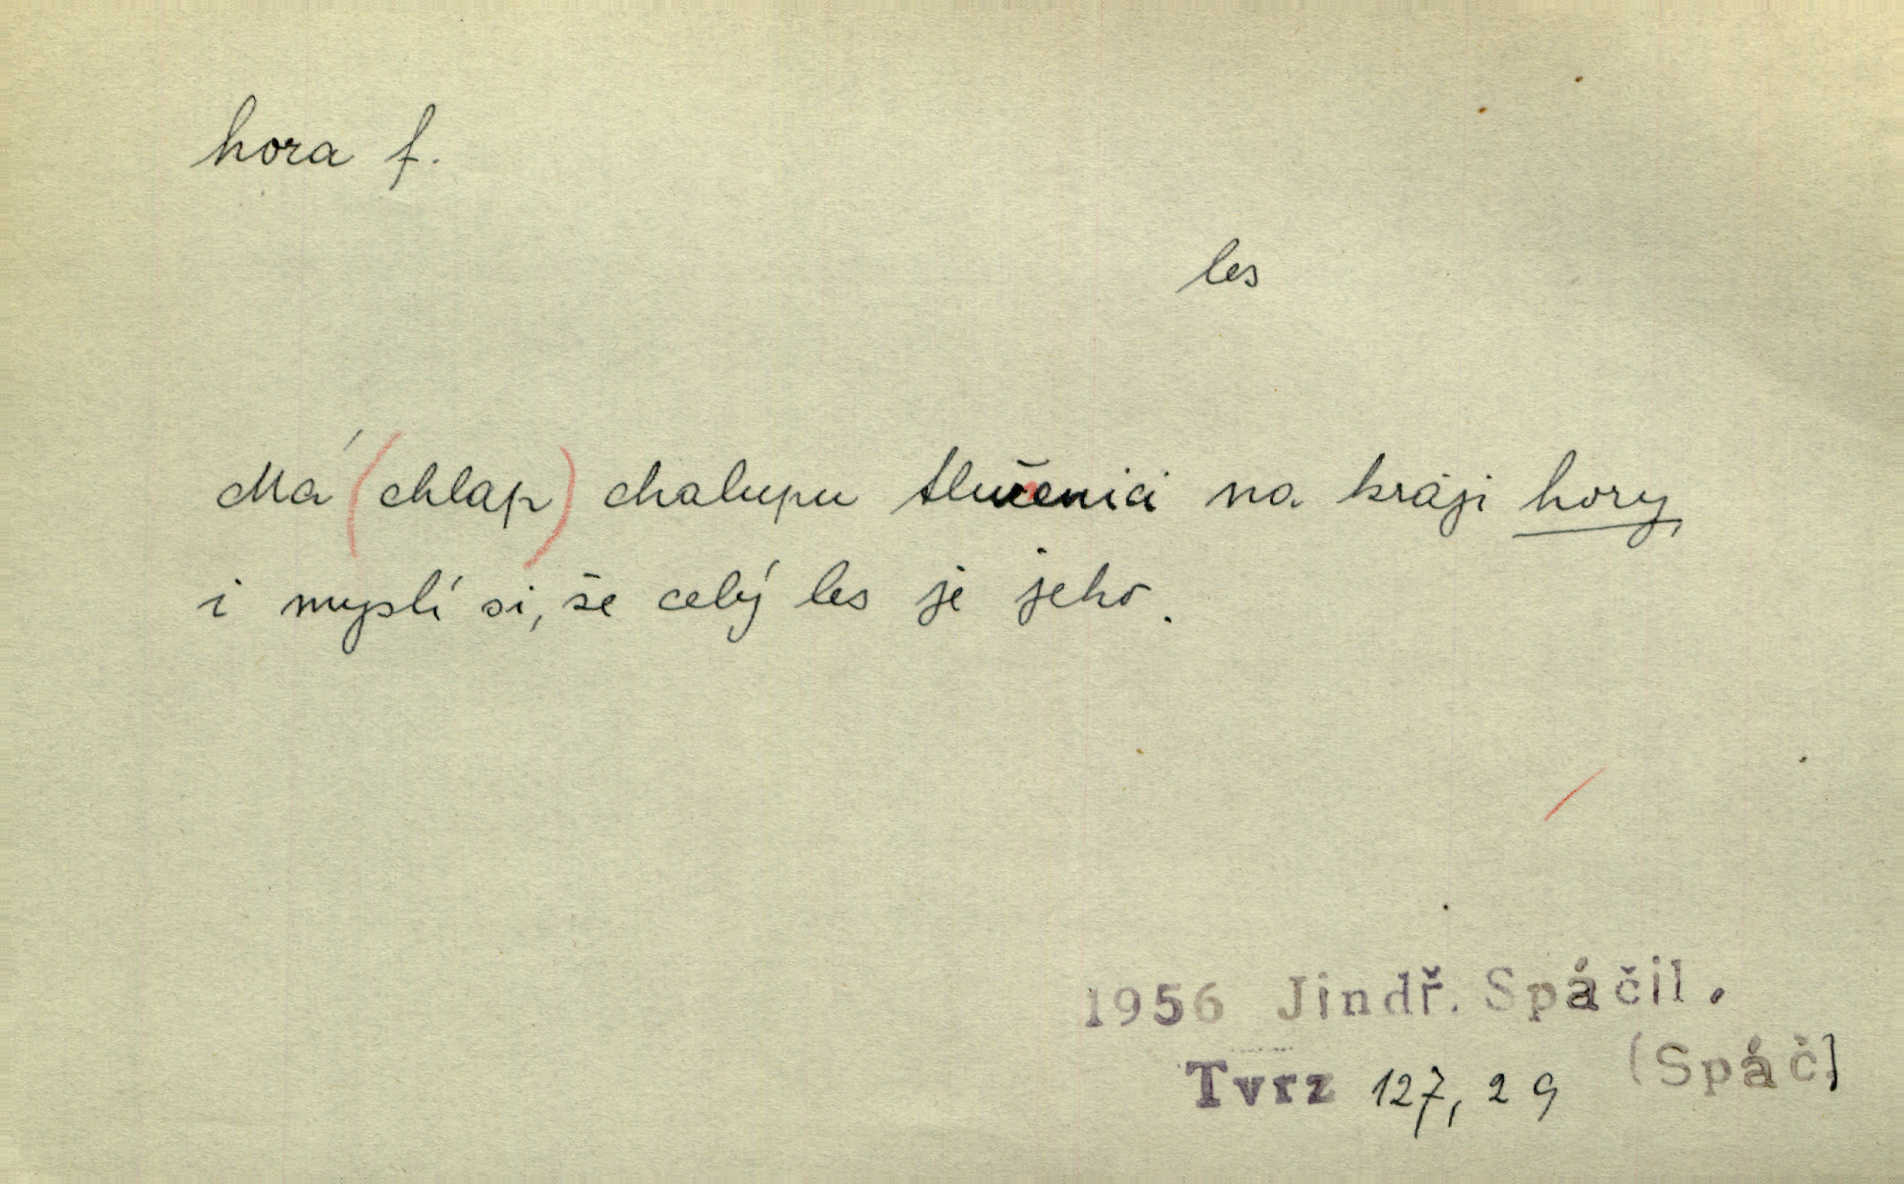 hora f.
les
Má (chlap) chalupu tlučenici na kraji hory
i myslí si, že celý les je jeho.
1956 Jindř. Spáčil.
Tvrz 127, 29 [Spáč]